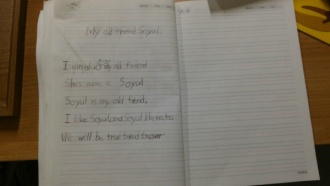 My old friend Soyul.
I my old friend
She's name is Soyul
Soyul is my old friend.
I like Soyul and Soyul like me too
We will be true friend forever